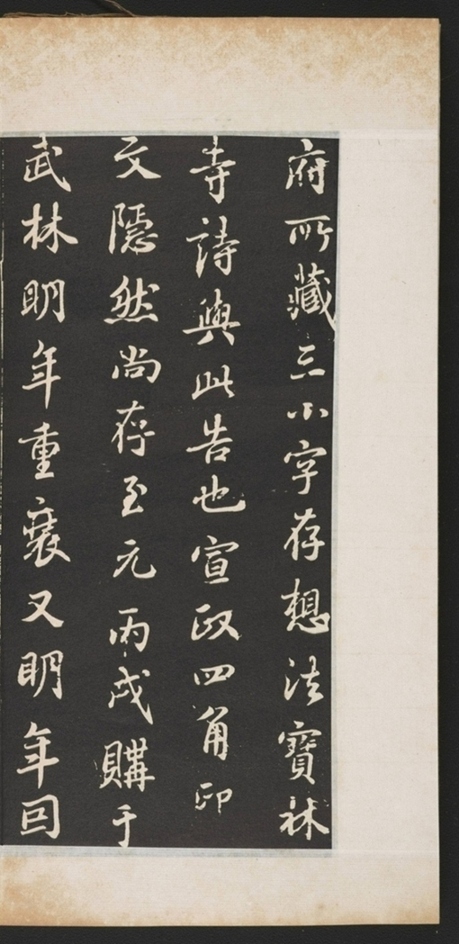 府所藏三小字存想法寶林
寺詩與此告也宣政四角印
文隱然尚存至元丙戌購于
武林明年重裝又明年回